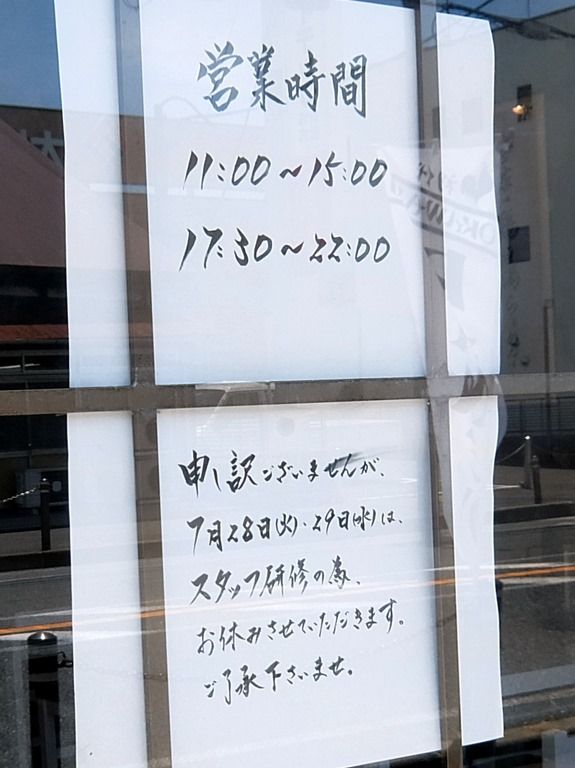 営業時間
11:00～15:00
17:30～22:00
申し訳ございませんが、
7月28日(火)・29日(水)は、
スタッフ研修の為、
お休みさせていただきます。
ご了承下さいませ。